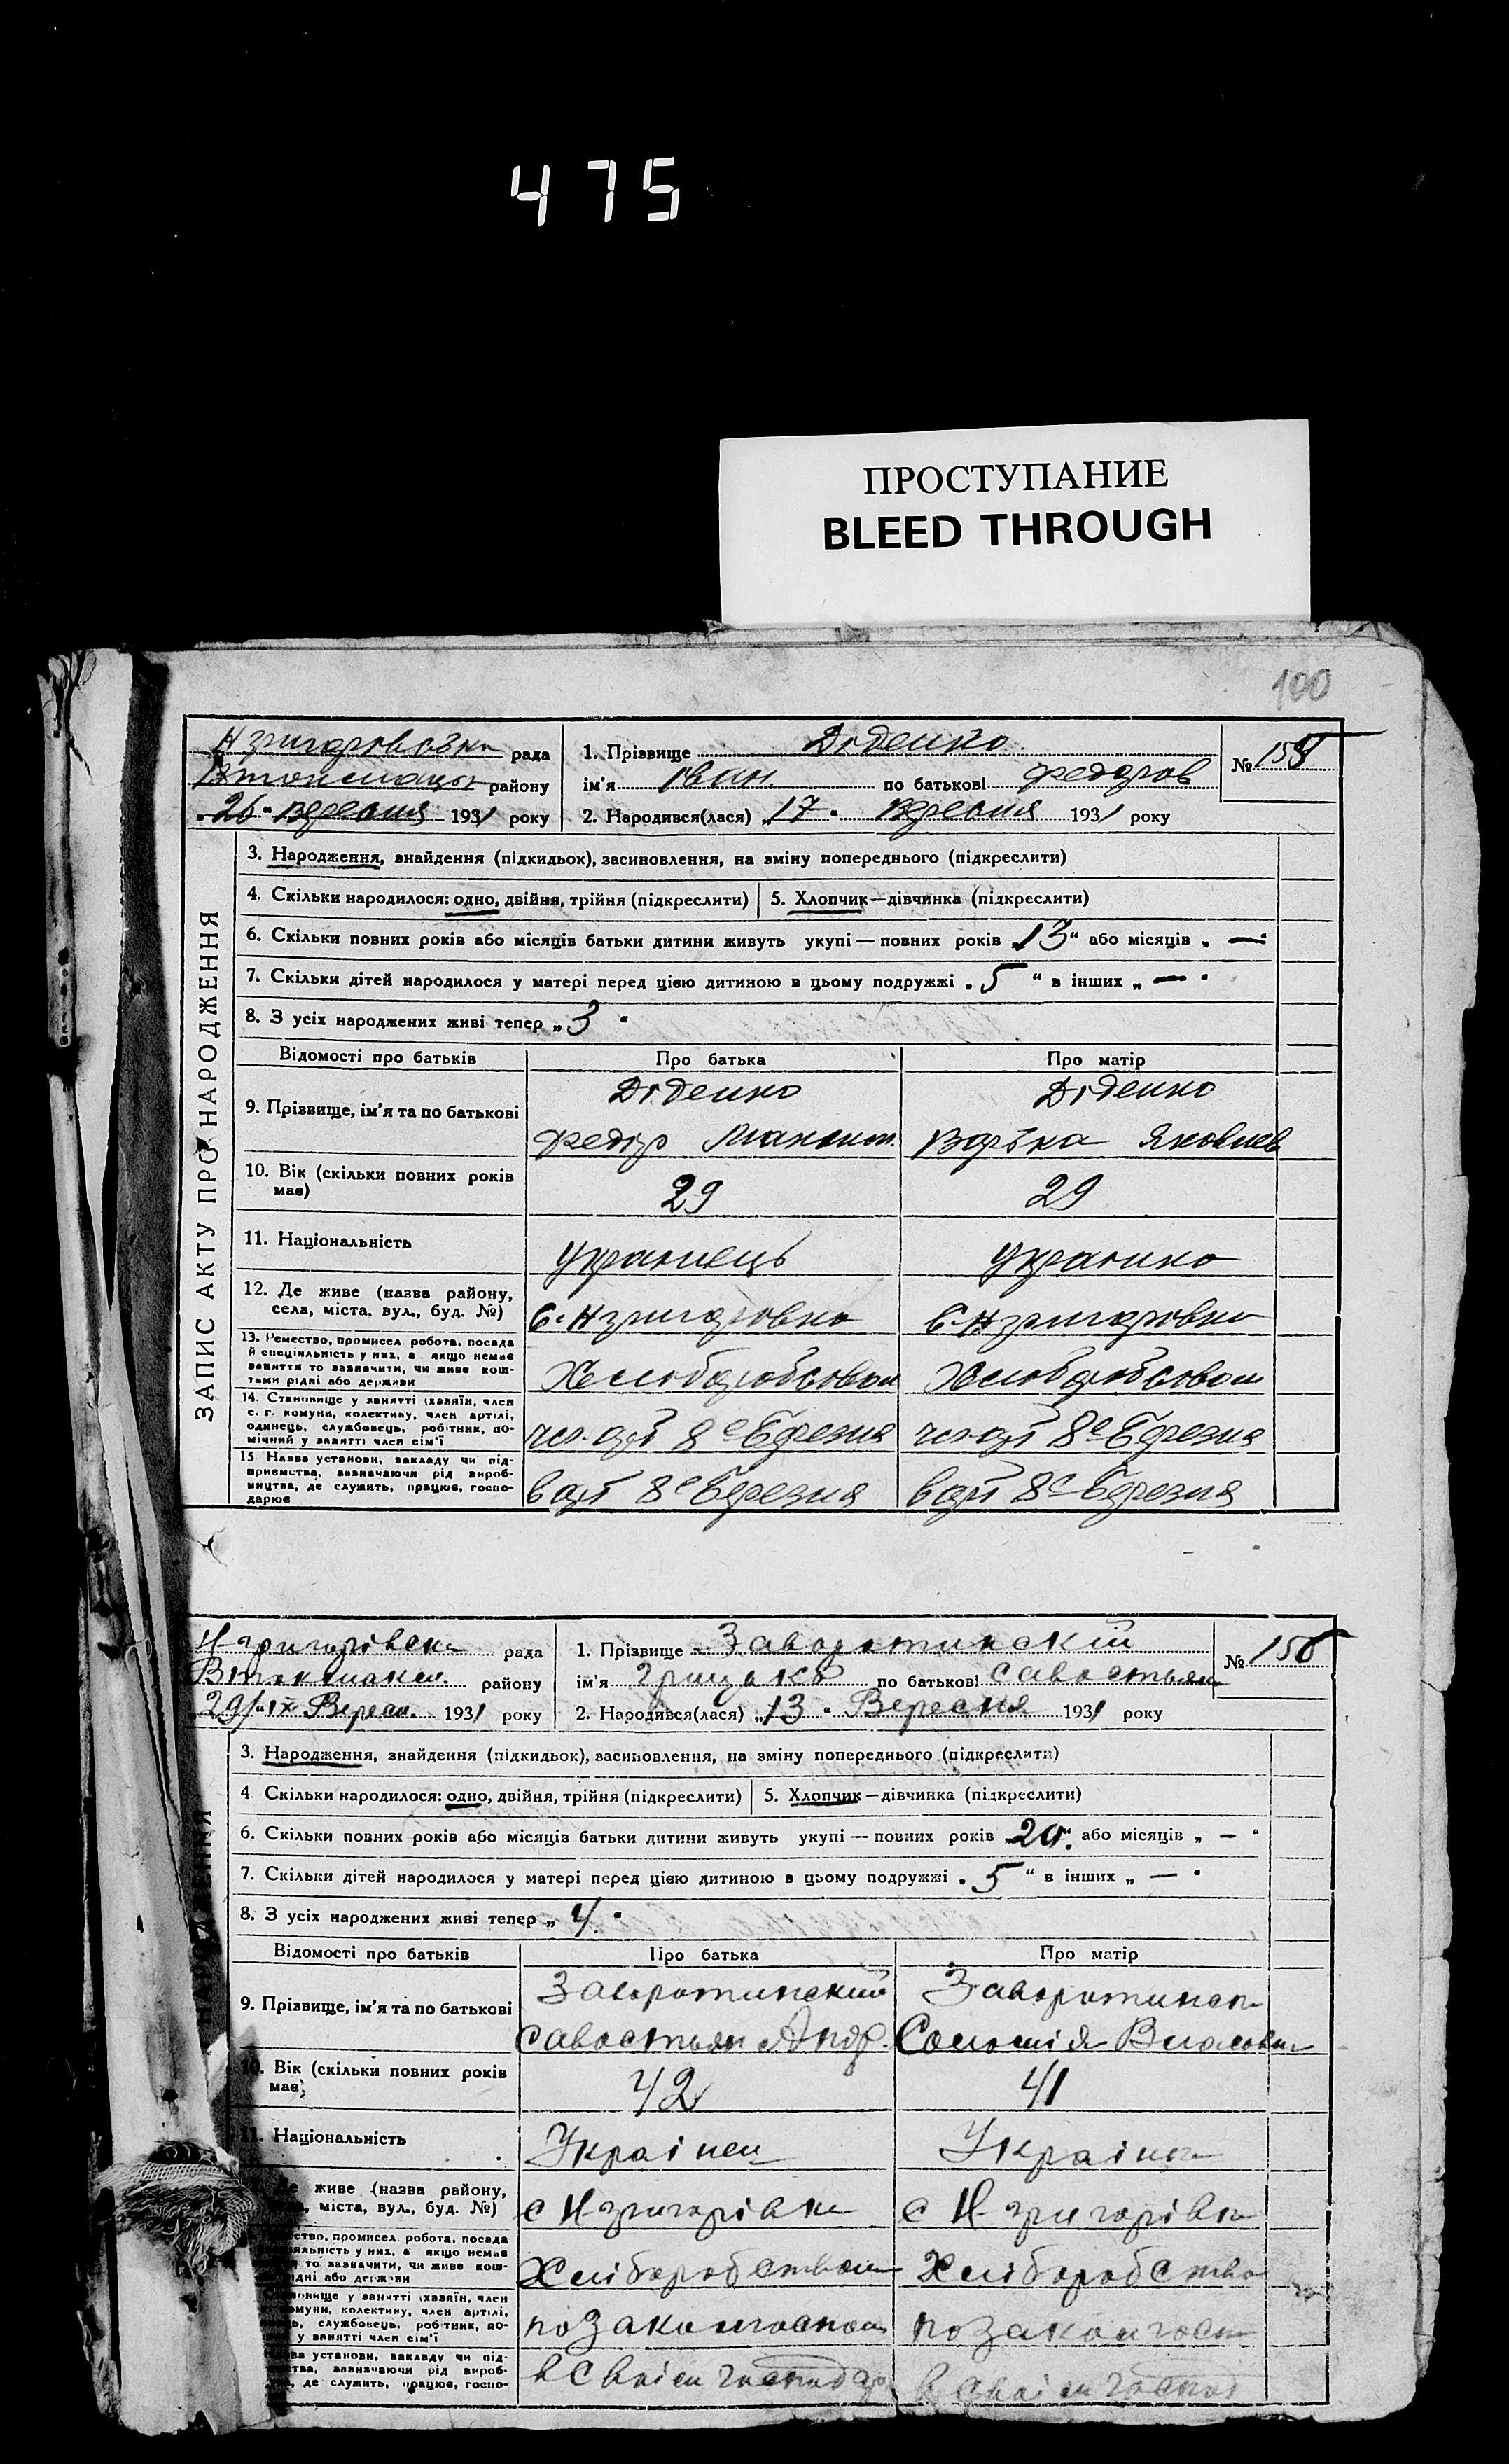 475
ПРОСТУПАНИЕ
BLEED THROUGH
100
ЗАПИС АКТУ ПРО НАРОДЖЕННЯ
рада
району
„26“ вересня 1931 року
1. Прізвище Діденко
ім'я Іван по батькові Федоров
№ 155
2. Народився(лася) „17“ Вересня 1931 року
3. Народження, знайдення (підкидьок), засиновлення, на зміну попереднього (підкреслити)
4. Скільки народилося: одно, двійня, трійня (підкреслити) 5. Хлопчик—дівчинка (підкреслити)
6. Скільки повних років або місяців батьки дитини живуть укупі — повних років „13“ або місяців „—“
7. Скільки дітей народилося у матері перед цією дитиною в цьому подружжі „5“ в інших „—“
8. З усіх народжених живі тепер „3“
Відомості про батьків Про батька Про матір
9. Прізвище, ім'я та по батькові Діденко Діденко
Федір Варька Яковлев
10. Вік (скільки повних років має) 29 29
11. Національність
12. Де живе (назва району, села, міста, вул., буд. №)
13. Ремество, промисел, робота, посада й спеціяльність у них, а якщо немає заняття то зазначити, чи живе коштами рідні або держави
14. Становище у занятті (хазяїн, член с. г. комуни, колективу, член артілі, одинець, службовець, робітник, помічний у занятті член сім'ї чл. арт 8е Березня чл. арт 8е Березня
15 Назва установи, закладу чи підприємства, зазначаючи рід виробництва, де служить, працює, господарює в арт 8е Березня в арт 8е Березня
Н-Григорівськ рада
району
29/IX Вересн. 1931 року
1. Прізвище Заворотинский
ім'я Грицько по батькові Савостьян
№ 156
2. Народився(лася) „13“ Вересня 1931 року
3. Народження, знайдення (підкидьок), засиновлення, на зміну попереднього (підкреслити)
4. Скільки народилося: одно, двійня, трійня (підкреслити) 5. Хлопчик—дівчинка (підкреслити)
6. Скільки повних років або місяців батьки дитини живуть укупі — повних років „20“ або місяців „—“
7. Скільки дітей народилося у матері перед цією дитиною в цьому подружжі „5“ в інших „—“
8. З усіх народжених живі тепер „4“
Відомості про батьків Про батька Про матір
9. Прізвище, ім'я та по батькові Заворотинский Заворотинск
Савостьян Андр. Соломія Власовна
10. Вік (скільки повних років має) 42 41
11. Національність Українец Українка
живе (назва району, міста, вул., буд. №) с Н-Григорівка с Н-Григорівка
промисел, робота, посада у них, а якщо немає то зазначити, чи живе кош- або держави Хліборобством Хліборобство
у занятті (хазяїн, член колективу, член артілі, службовець, робітник, по- у занятті член сім'ї
установи, закладу чи під- зазначаючи рід вироб- де служить, працює, госпо-